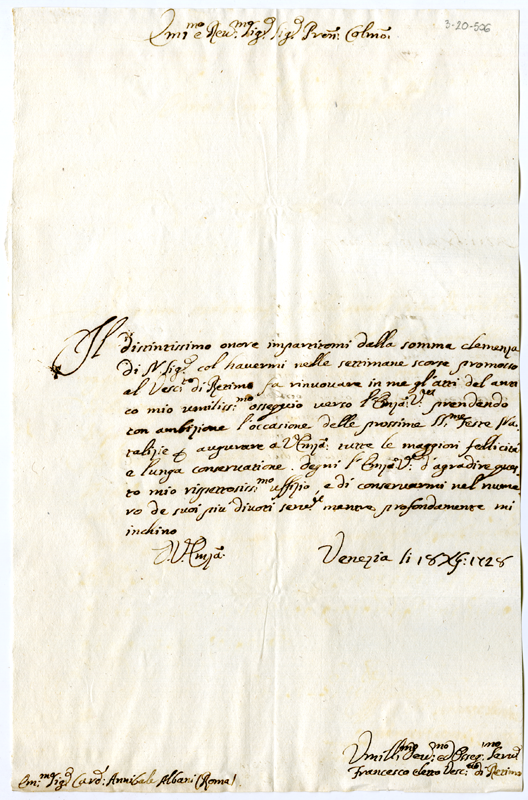 3-20-506
Emi.mo e Rev.mo Sig.r Sig.r Pron. Colmo.
Il distintissimo onore impartitomi dalla somma clemenza
di N. Sig.re col havermi nelle settimane scorse promosso
al Vesc.to di Retimo fa rinuovare in me gl'atti del anti
co mio umiliss.mo osseguio verso l'Emza: V.ra prendendo
con ambizione l'occasione delle prossime SS.me Feste Na
talizie augurare a V. Emza: tutte le maggiori felicità
e lunga conservatione. degni l'Emza: V. d'agradire ques
to mio rispettosiss.mo uffizio, e di conservarmi nel nume
ro de suoi piu divoti serv. mentre profondamente mi
inchino
D. V. Emza:
Venezia li 18 Xb: 1728
Umill.mo Dev.mo ed Osseq.mo Servid
Francesco eletto Vesc.vo di Retimo
Em.mo Sig.r Card: Annibale Albani (Roma)